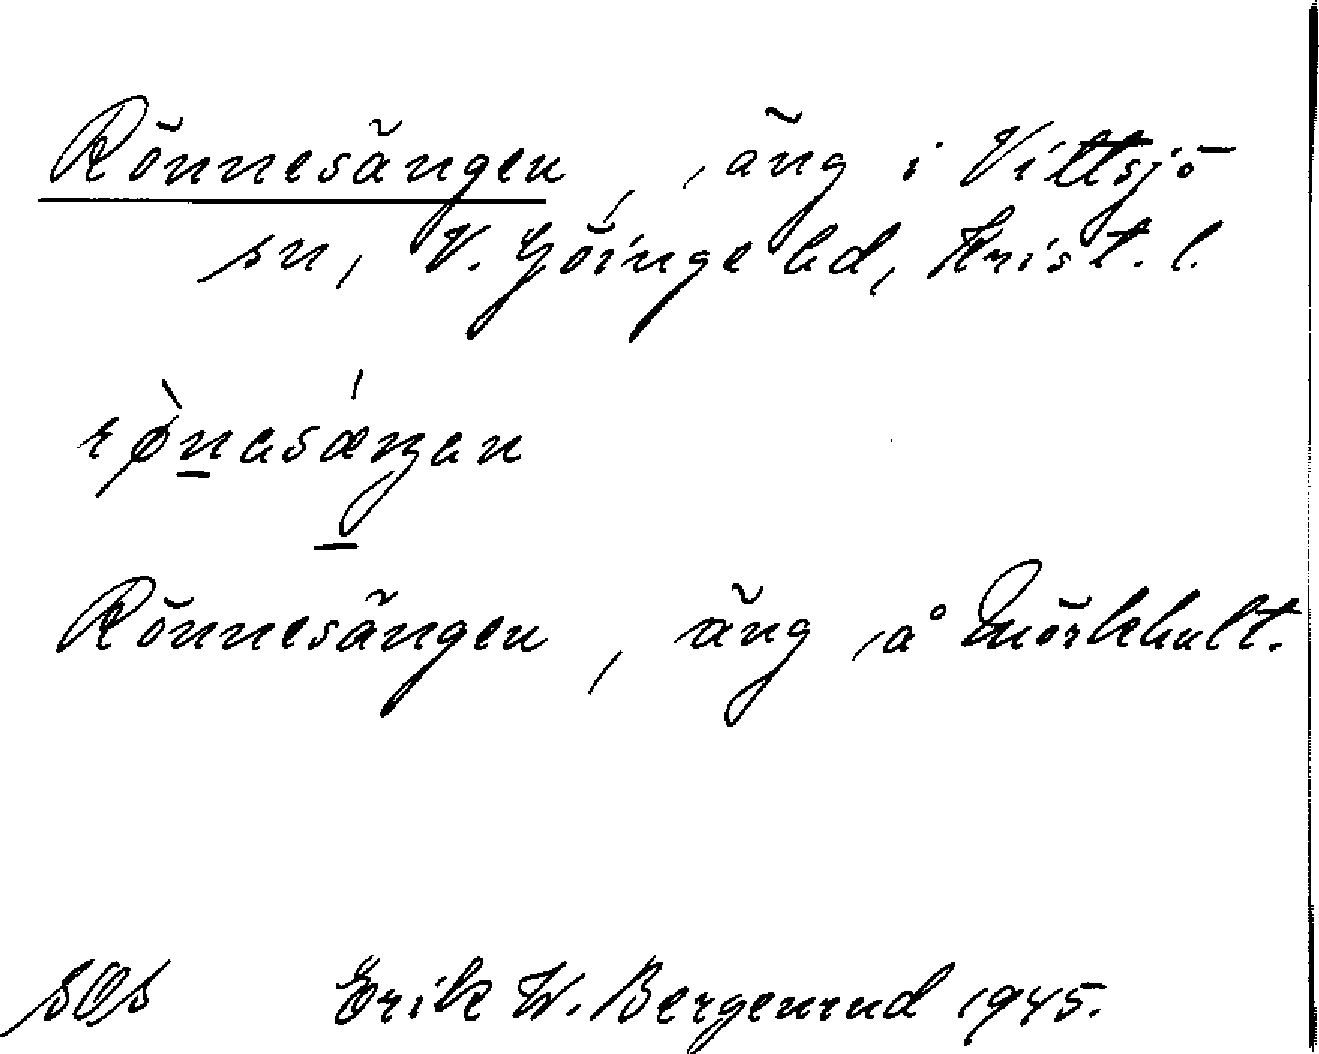 Rönnesängen, äng i Vittsjö
sn, V. Göinge hd, Krist. l.
rø̀nasǽŋan
Rönnesängen, äng å Mörkhult.
SOS Erik W. Bergenrud 1945.